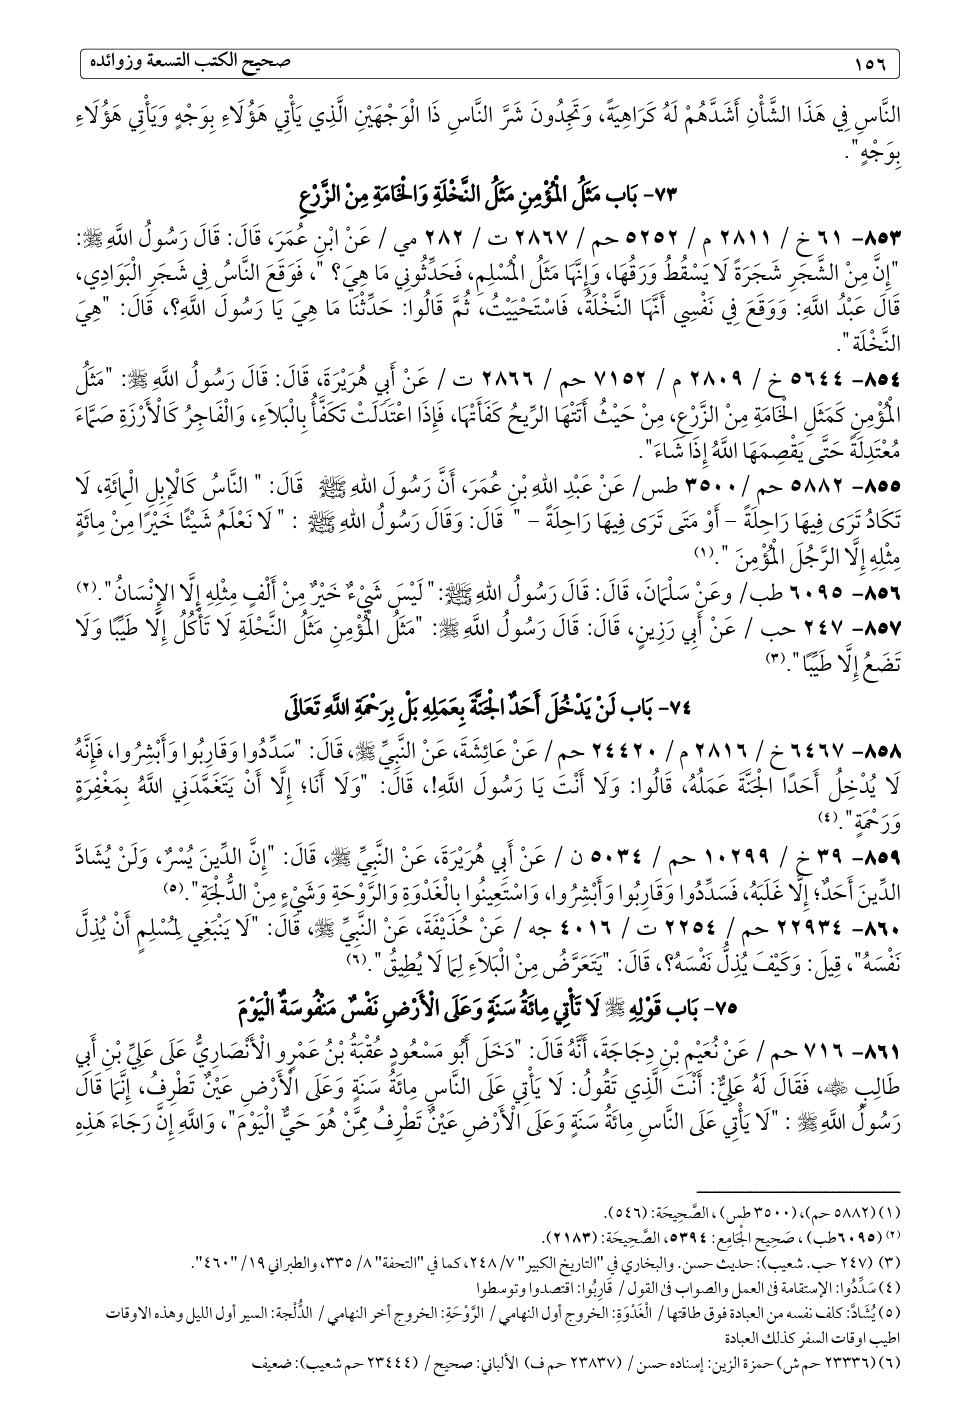 ١٥٦
صحيح الكتب التسعة وزوائده
النَّاسِ فِي هَذَا الشَّأْنِ أَشَدَّهُمْ لَهُ كَرَاهِيَةً، وَتَجِدُونَ شَرَّ النَّاسِ ذَا الْوَجْهَيْنِ الَّذِي يَأْتِي هَؤُلَاءِ بِوَجْهٍ وَيَأْتِي هَؤُلَاءِ
بِوَجْهٍ".
٧٣- بَاب مَثَلُ الْمُؤْمِنِ مَثَلُ النَّخْلَةِ وَالْخَامَةِ مِنْ الزَّرْعِ
٨٥٣- ٦١ خ / ٢٨١١ م / ٥٢٥٢ حم / ٢٨٦٧ ت / ٢٨٢ مي / عَنْ ابْنِ عُمَرَ، قَالَ: قَالَ رَسُولُ اللَّهِ ﷺ:
"إِنَّ مِنْ الشَّجَرِ شَجَرَةً لَا يَسْقُطُ وَرَقُهَا، وَإِنَّهَا مَثَلُ الْمُسْلِمِ، فَحَدِّثُونِي مَا هِيَ؟ "، فَوَقَعَ النَّاسُ فِي شَجَرِ الْبَوَادِي،
قَالَ عَبْدُ اللَّهِ: وَوَقَعَ فِي نَفْسِي أَنَّهَا النَّخْلَةُ، فَاسْتَحْيَيْتُ، ثُمَّ قَالُوا: حَدِّثْنَا مَا هِيَ يَا رَسُولَ اللَّهِ؟، قَالَ: "هِيَ
النَّخْلَة".
٨٥٤- ٥٦٤٤ خ / ٢٨٠٩ م / ٧١٥٢ حم / ٢٨٦٦ ت / عَنْ أَبِي هُرَيْرَةَ، قَالَ: قَالَ رَسُولُ اللَّهِ ﷺ: "مَثَلُ
الْمُؤْمِنِ كَمَثَلِ الْخَامَةِ مِنْ الزَّرْعِ، مِنْ حَيْثُ أَتَتْهَا الرِّيحُ كَفَأَتْهَا، فَإِذَا اعْتَدَلَتْ تَكَفَّأُ بِالْبَلَاءِ، وَالْفَاجِرُ كَالْأَرْزَةِ صَمَّاءَ
مُعْتَدِلَةً حَتَّى يَقْصِمَهَا اللَّهُ إِذَا شَاءَ".
٨٥٥- ٥٨٨٢ حم / ٣٥٠٠ طس/ عَنْ عَبْدِ اللهِ بْنِ عُمَرَ، أَنَّ رَسُولَ اللهِ ﷺ قَالَ: " النَّاسُ كَالْإِبِلِ الْمِائَةِ، لَا
تَكَادُ تَرَى فِيهَا رَاحِلَةً – أَوْ مَتَى تَرَى فِيهَا رَاحِلَةً – " قَالَ: وَقَالَ رَسُولُ اللهِ ﷺ : " لَا نَعْلَمُ شَيْئًا خَيْرًا مِنْ مِائَةٍ
مِثْلِهِ إِلَّا الرَّجُلَ الْمُؤْمِنَ ".(١)
٨٥٦- ٦٠٩٥ طب/ وعَنْ سَلْمَانَ، قَالَ: قَالَ رَسُولُ اللهِ ﷺ: " لَيْسَ شَيْءٌ خَيْرٌ مِنْ أَلْفٍ مِثْلِهِ إِلَّا الإِنْسَانُ ".(٢)
٨٥٧- ٢٤٧ حب / عَنْ أَبِي رَزِينٍ، قَالَ: قَالَ رَسُولُ اللَّهِ ﷺ: "مَثَلُ الْمُؤْمِنِ مَثَلُ النَّحْلَةِ لَا تَأْكُلُ إِلَّا طَيِّبًا وَلَا
تَضَعُ إِلَّا طَيِّبًا".(٣)
٧٤- بَاب لَنْ يَدْخُلَ أَحَدٌ الْجَنَّةَ بِعَمَلِهِ بَلْ بِرَحْمَةِ اللَّهِ تَعَالَى
٨٥٨- ٦٤٦٧ خ / ٢٨١٦ م / ٢٤٤٢٠ حم / عَنْ عَائِشَةَ، عَنْ النَّبِيِّ ﷺ، قَالَ: "سَدِّدُوا وَقَارِبُوا وَأَبْشِرُوا، فَإِنَّهُ
لَا يُدْخِلُ أَحَدًا الْجَنَّةَ عَمَلُهُ، قَالُوا: وَلَا أَنْتَ يَا رَسُولَ اللَّهِ!، قَالَ: "وَلَا أَنَا؛ إِلَّا أَنْ يَتَغَمَّدَنِي اللَّهُ بِمَغْفِرَةٍ
وَرَحْمَةٍ".(٤)
٨٥٩- ٣٩ خ / ١٠٢٩٩ حم / ٥٠٣٤ ن / عَنْ أَبِي هُرَيْرَةَ، عَنْ النَّبِيِّ ﷺ، قَالَ: "إِنَّ الدِّينَ يُسْرٌ، وَلَنْ يُشَادَّ
الدِّينَ أَحَدٌ؛ إِلَّا غَلَبَهُ، فَسَدِّدُوا وَقَارِبُوا وَأَبْشِرُوا، وَاسْتَعِينُوا بِالْغَدْوَةِ وَالرَّوْحَةِ وَشَيْءٍ مِنْ الدُّلْجَةِ".(٥)
٨٦٠- ٢٢٩٣٤ حم / ٢٢٥٤ ت / ٤٠١٦ جه / عَنْ حُذَيْفَةَ، عَنْ النَّبِيِّ ﷺ، قَالَ: "لَا يَنْبَغِي لِمُسْلِمٍ أَنْ يُذِلَّ
نَفْسَهُ"، قِيلَ: وَكَيْفَ يُذِلُّ نَفْسَهُ؟، قَالَ: "يَتَعَرَّضُ مِنْ الْبَلَاءِ لِمَا لَا يُطِيقُ".(٦)
٧٥- بَاب قَوْلِهِ ﷺ لَا تَأْتِي مِائَةُ سَنَةٍ وَعَلَى الْأَرْضِ نَفْسٌ مَنْفُوسَةٌ الْيَوْمَ
٨٦١- ٧١٦ حم / عَنْ نُعَيْمِ بْنِ دِجَاجَةَ، أَنَّهُ قَالَ: "دَخَلَ أَبُو مَسْعُودٍ عُقْبَةُ بْنُ عَمْرٍو الْأَنْصَارِيُّ عَلَى عَلِيِّ بْنِ أَبِي
طَالِبٍ ﵁، فَقَالَ لَهُ عَلِيٌّ: أَنْتَ الَّذِي تَقُولُ: لَا يَأْتِي عَلَى النَّاسِ مِائَةُ سَنَةٍ وَعَلَى الْأَرْضِ عَيْنٌ تَطْرِفُ، إِنَّمَا قَالَ
رَسُولُ اللَّهِ ﷺ : "لَا يَأْتِي عَلَى النَّاسِ مِائَةُ سَنَةٍ وَعَلَى الْأَرْضِ عَيْنٌ تَطْرِفُ مِمَّنْ هُوَ حَيٌّ الْيَوْمَ"، وَاللَّهِ إِنَّ رَجَاءَ هَذِهِ
(١) (٥٨٨٢ حم)، (٣٥٠٠ طس) ، الصَّحِيحَة: (٥٤٦).
(٢) (٦٠٩٥طب) ، صَحِيح الْجَامِع: ٥٣٩٤، الصَّحِيحَة: (٢١٨٣).
(٣) (٢٤٧ حب. شعيب): حديث حسن. والبخاري في "التاريخ الكبير" ٢٤٨/٧، كما في "التحفة" ٨/ ٣٣٥، والطبراني ١٩/ "٤٦٠".
(٤) سَدِّدُوا: الإستقامة فى العمل والصواب فى القول / قَارِبُوا: اقتصدوا وتوسطوا
(٥) يُشَادَّ: كلف نفسه من العبادة فوق طاقتها / الْغَدْوَةِ: الخروج أول النهامي / الرَّوْحَةِ: الخروج أخر النهامي / الدُّلْجة: السير أول الليل وهذه الاوقات
اطيب اوقات السفر كذلك العبادة
(٦) (٢٣٣٣٦ حم ش) حمزة الزين: إسناده حسن / (٢٣٨٣٧ حم ف) الألباني: صحيح / (٢٣٤٤٤ حم شعيب): ضعيف